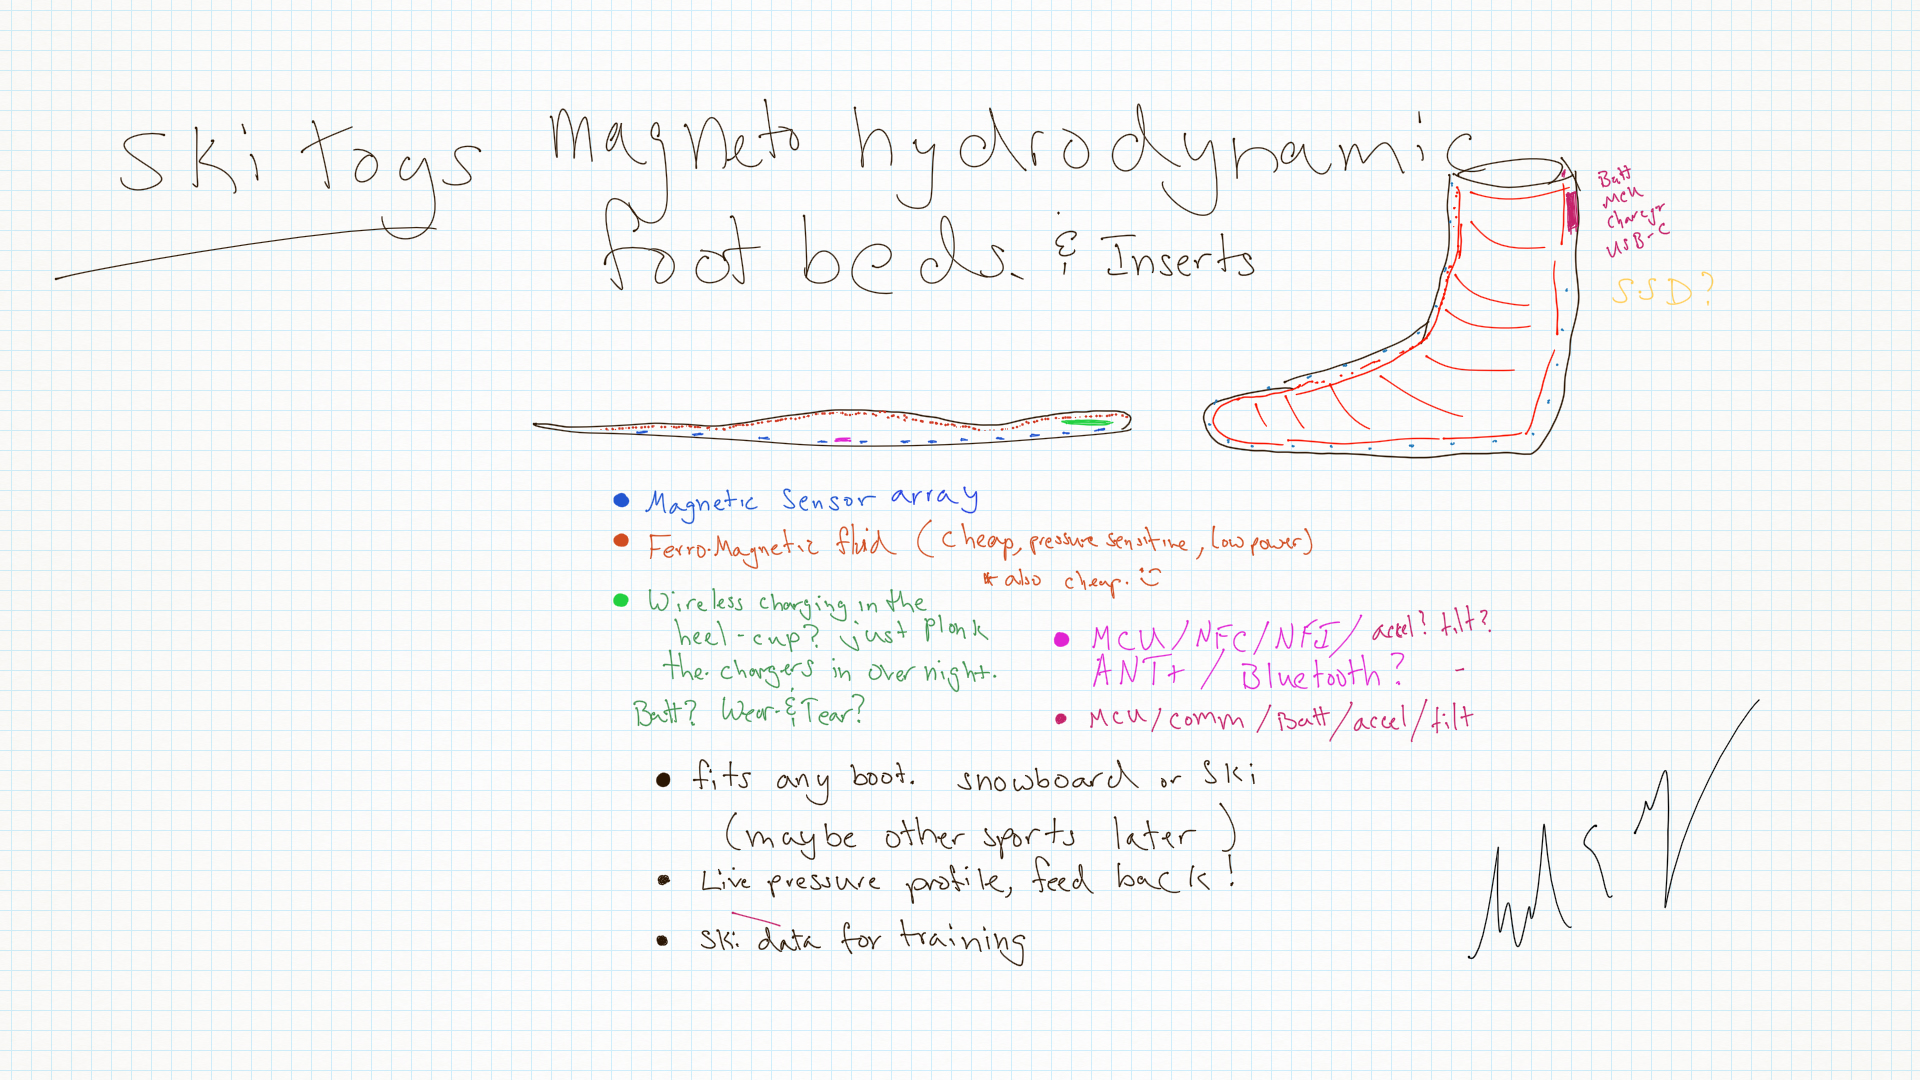 Ski togs
Magneto hydrodynamic
foot beds. & Inserts
Batt
MCU
USB-C
SSD?
Magnetic Sensor array
Ferro-Magnetic fluid (cheap, pressure sensitive, low power)
* also cheap. :)
Wireless charging in the
heel-cup? just plonk
the chargers in over night.
Batt? Wear & Tear?
MCU/NFC/NFI/accel? tilt?
ANT+ / Bluetooth?
MCU/comm/Batt/accel/tilt
fits any boot. snowboard or Ski
(maybe other sports later)
Live pressure profile, feed back!
Ski data for training